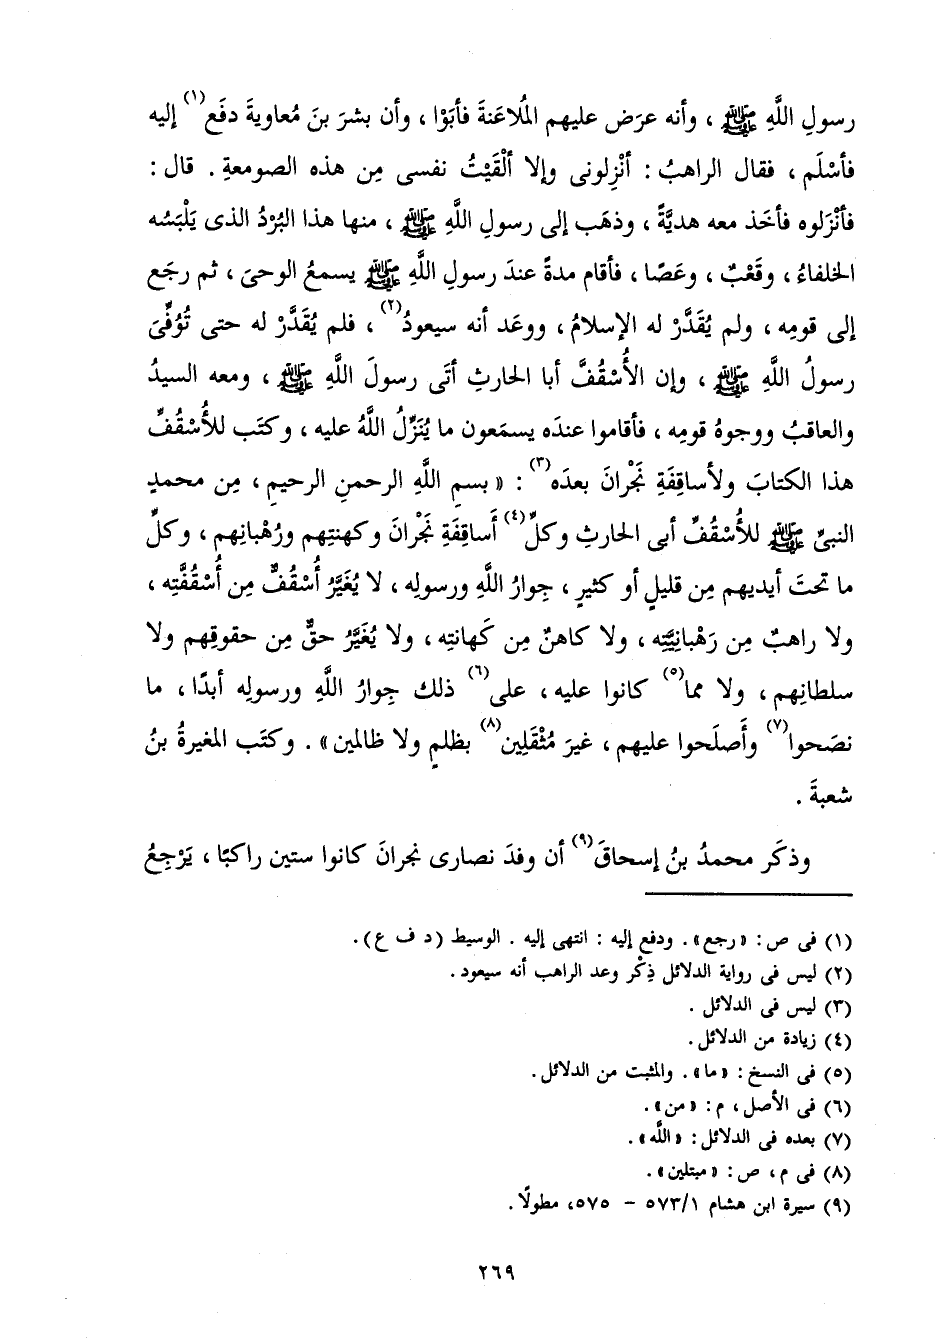 رسولِ اللَّهِ ﷺ ، وأنه عرَض عليهم المُلاعَنةَ فأبَوْا ، وأن بشرَ بنَ مُعاويةَ دفَع(١) إليه
فأسْلَم ، فقال الراهبُ : أنْزِلونى وإلا ألْقَيْتُ نفسى مِن هذه الصومعةِ . قال :
فأنْزَلوه فأخَذ معه هديَّةً ، وذهَب إلى رسولِ اللَّهِ ﷺ ، منها هذا البُرْدُ الذى يَلْبَسُه
الخلفاءُ ، وقَعْبٌ ، وعَصًا ، فأقام مدةً عندَ رسولِ اللَّهِ ﷺ يسمعُ الوحىَ ، ثم رجَع
إلى قومِه ، ولم يُقَدَّرْ له الإسلامُ ، ووعَد أنه سيعودُ(٢) ، فلم يُقَدَّرْ له حتى تُوُفِّىَ
رسولُ اللَّهِ ﷺ ، وإن الأُسْقُفَّ أبا الحارثِ أتَى رسولَ اللَّهِ ﷺ ، ومعه السيدُ
والعاقبُ ووجوهُ قومِه ، فأقاموا عندَه يسمَعون ما يُنَزِّلُ اللَّهُ عليه ، وكتَب للأُسْقُفِّ
هذا الكتابَ ولأساقِفَةِ نَجْرانَ بعدَه(٣) : « بسمِ اللَّهِ الرحمنِ الرحيمِ ، مِن محمدٍ
النبىِّ ﷺ للأُسْقُفِّ أبى الحارثِ وكلِّ(٤) أَساقِفَةِ نَجْرانَ وكهنتِهم ورُهْبانِهم ، وكلِّ
ما تحتَ أيديهم مِن قليلٍ أو كثيرٍ ، جِوارُ اللَّهِ ورسولِه ، لا يُغَيَّرُ أُسْقُفٌّ مِن أُسْقُفَّتِه ،
ولا راهبٌ مِن رَهْبانِيَّتِه ، ولا كاهنٌ مِن كَهانتِه ، ولا يُغَيَّرُ حقٌّ مِن حقوقِهم ولا
سلطانِهم ، ولا مما(٥) كانوا عليه ، على(٦) ذلك جِوارُ اللَّهِ ورسولِه أبدًا ، ما
نصَحوا(٧) وأَصلَحوا عليهم ، غيرَ مُثْقَلِين(٨) بظلمٍ ولا ظالمين » . وكتَب المغيرةُ بنُ
شعبةَ .
وذكَر محمدُ بنُ إسحاقَ(٩) أن وفدَ نصارى نجرانَ كانوا ستين راكبًا ، يَرْجِعُ
(١) فى ص : « رجع » . ودفع إليه : انتهى إليه . الوسيط (د ف ع) .
(٢) ليس فى رواية الدلائل ذِكْر وعد الراهب أنه سيعود .
(٣) ليس فى الدلائل .
(٤) زيادة من الدلائل .
(٥) فى النسخ : « ما » . والمثبت من الدلائل .
(٦) فى الأصل ، م : « من » .
(٧) بعده فى الدلائل : « اللَّه » .
(٨) فى م ، ص : « مبتلين » .
(٩) سيرة ابن هشام ٥٧٣/١ - ٥٧٥، مطولًا .
٢٦٩